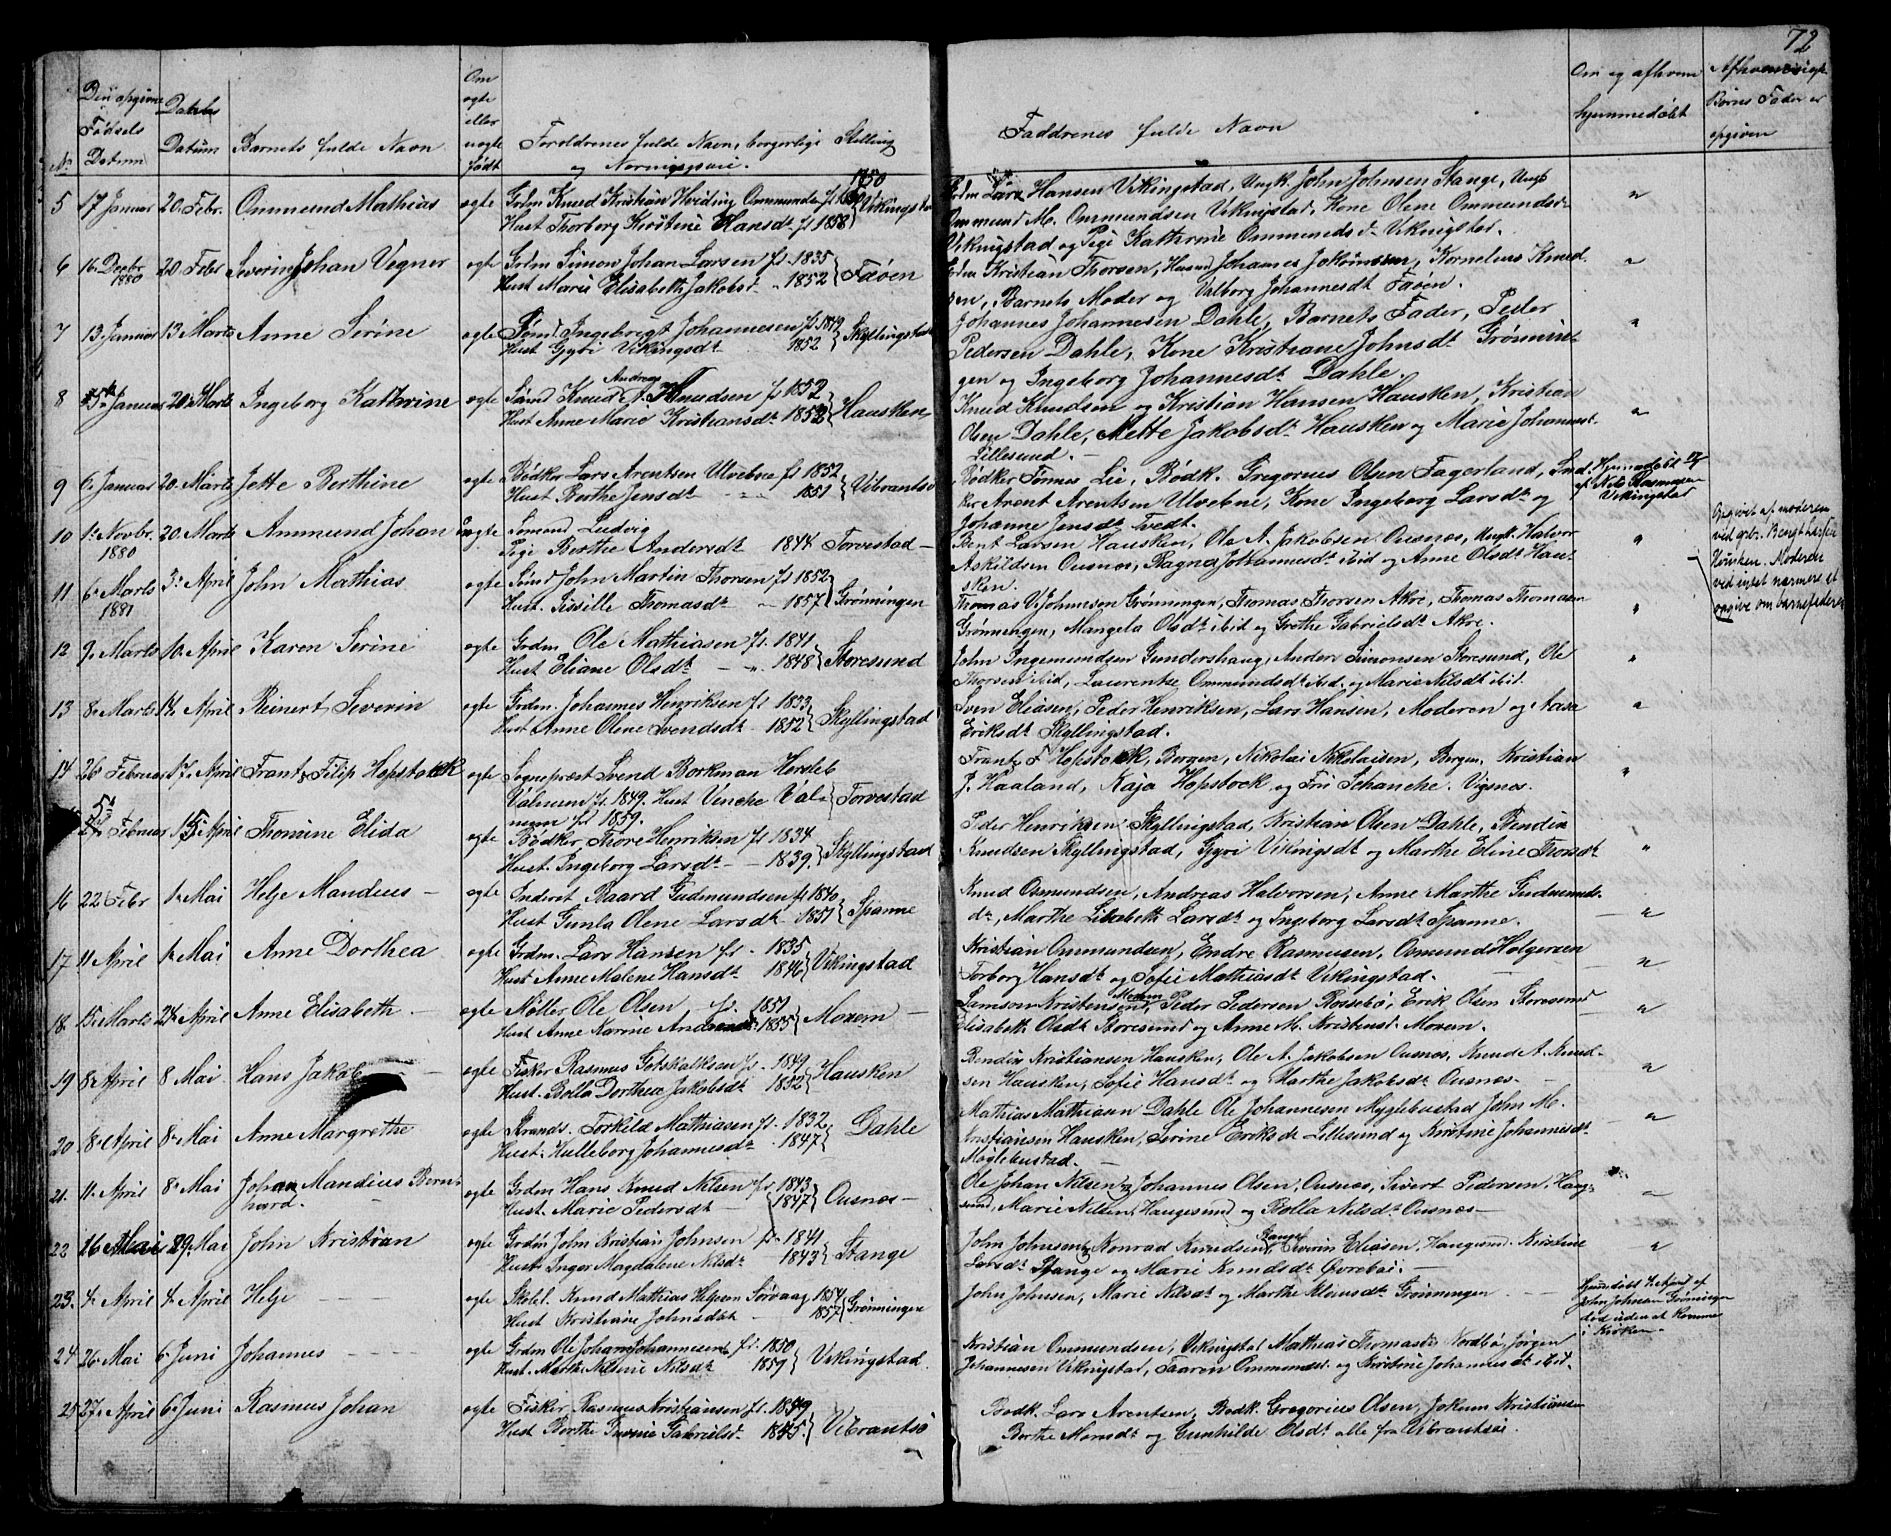 72
No
Den opgivne Fødsels Datum
Daabs Datum
Barnets fulde Navn
Om ægte eller uægte født
Forældrenes fulde Navn, borgerlige Stilling
og Næringsveie.
Faddrenes fulde Navn
Om og afhvem hjemmedøbt
opgiven
5 17 Januar 20. Febr. Ommund Mathias ægte Grdm Knud Kristian Ommunds f. 1850 Vikingstad
Hust Thorborg Kirstine Hansdt f. 1858
Grdm Lars Hansen Vikingstad, Ungk. John Johnsen Stange, Ungk
Ommund M. Ommundsen Vikingstad, Kone Olene Ommundsdt
Vikingstad og Pige Kathrine Ommundsdt Vikingstad.
6 16 Decbr 1880 20 Febr Severin Johan Vegner ægte Grdm Simon Johan Larsen f. 1835
Hust Marie Elisabeth Jakobsd - 1852 Faøen
Grdm Kristian Thorsen, Husmd Johannes Jakobsen, Kornelius Knud-
sen, Barnets Moder og Valborg Johannesdt Faøen.
7 13 Januar 13 Marts Anne Serine ægte Sømd Ingebrigt Johannesen f. 1849 Skyllingstad
Hust Gyri Vikingsdt 1852
Johannes Johannesen Dahle, Barnets Fader, Peder
Pedersen Dahle, Kone Kristiane Johnsdt Grønnin-
gen og Ingeborg Johannesdt Dahle.
8 5 Januar 20 Marts Ingeborg Kathrine ægte Sømd Knud Andreas Knudsen f. 1852
Hust Anne Marie Kristiansdt 1852 Hausken
Knud Knudsen og Kristian Hansen Hausken, Kristian
Olsen Dahle, Mette Jakobsdt Hausken og Marie Johannesdt
Lillesund.
9 6 Januar 20. Marts Jette Berthine ægte Bødker Lars Arentsen Ulvebne f. 1852
Hust Berthe Jensdt 1851 Vibrantsø
Bødker Tønnes Lie, Bødk. Gregorius Olsen Fagerland, Snd-
ker Arent Arentsen Ulvebne, Kone Ingeborg Larsdt og
Johanne Jensdt Tvedt.
Hjemmedøbt af Nils Rasmussen Vikingstad
10 1 Novbr. 1880 20. Marts Ammund Johan uægte Sømand Ludvig
Pige Berthe Andersdt 1844 Torvestad
Bent Larsen Hausken, Ole A. Jakobsen Ousnæs, Ungk. Halvor
Askildsen Ousnæs, Ragna Johannesdt ibid og Anne Olsdt Hau-
sken.
Opgivet af moderen
Hausken. Moderen
ved intet nærmere at
opgive om barnefaderen
11 6 Marts 1881 3. April John Mathias ægte Sømd John Martin Thorsen f. 1852
Hust. Sissille Thomasdt 1857 Grønningen
Thomas V Johnson Grønningen, Thomas Thorsen Akre, Thomas Thomasen
Grønningen, Mangela Olsdt ibid og Grethe Gabrielsdt Akre.
12 9. Marts 10. April Karen Serine ægte Grdm Ole Mathiasen f. 1841
Hust Eliane Olsdt 1848 Storesund
John Ingemundsen Gundershaug, Anders Simonsen Storesund, Ole
Thorsen ibid, Laurentse Ommundsdt ibid. og Marie Nilsdt ibid.
13 8. Marts 14. April Reinert Severin ægte Grdm. Johannes Henriksen f. 1833
Hust Anne Olene Svendsdt 1852 Skyllingstad
Sven Eliasen, Peder Henriksen, Lars Hansen, Moderen og Aasa
Eriksdt Skyllingstad.
14 26 Februar 17. April Frantz Filip Hopstock ægte Sogneprest Svend Borkman Hersleb
Valeur f. 1849. Hust Venche Val- Torvestad
f. 1859.
Frantz F Hopstock, Bergen, Nikolai Nikolaisen, Bergen, Kristian
J. Haaland, Kaja Hopstock og Frú Schanche, Vigsnæs.
5 Februar 15 April Thomine Elida ægte Bødker Thore Henriksen f. 1834
Hust Ingeborg Larsdt - 1839 Skyllingstad
Peder Henriksen Skyllingstad, Kristian Olsen Dahle, Bendix
Knudsen Skyllingstad, Gyri Vikingsdt og Marthe Eline Thorsdt
16 22 Febr 1. Mai Helje Mandius ægte Inderst Baard Gudmundsen f. 1840
Hust Gunla Olene Larsdt 1851 Spanne
Knud Osmundsen, Andreas Halvorsen, Anne Marthe Gudmunds-
dt, Marthe Lisabeth Larsdt og Ingeborg Larsdt Spanne.
17 11 April 1 Mai Anne Dorthea ægte Grdm. Lars Hansen f. 1835
Hust Anne Malene Hansdt 1846 Vikingstad
Kristian Ommundsen, Endre Rasmusen, Osmund Holgersen
Torborg Hansdt og Sofie Mathiasdt Vikingstad.
18. 15. Marts 24. April Anne Elisabeth ægte Møller Ole Olsen f. 1851
Hust Anne Karine Andersdt 1855 Moxem
Samson Kristensen Moxem, Peder Pedersen Rossebø, Erik Olsen Storesund
Elisabeth Olsdt Storesund og Anne M. Kristensd. Moxem.
19 8. April 8 Mai Hans Jakob ægte Fisker Rasmus Gotskalksen f. 1849
Hust. Bolla Dorthea Jakobsdt 1852 Hausken
Bendix Kristiansen Hausken, Ole A. Jakobsen Ousnæs, Knud A. Knud-
sen Hausken, Sofie Hansdt og Marthe Jakobsdt Ousnæs.
20 18. April 8. Mai Anne Margrethe ægte Strands. Torkild Mathiasen f. 1832
Hust. Hulleborg Johannesdt 1847 Dahle
Mathias Mathiasen Dahle Ole Johannesen Myglebustad John M.
Kristiansen Hausken, Serine Eriksdt Lillesund og Kristine Johannesdt
Møglebustad.
21. 11. April 8. Mai Johan Mandius Bern-
hard. ægte Grdm Hans Knud Nilsen f. 1843
Hust. Marie Pedersdt 1847 Ousnæs
Ole Johan Nilsen og Johannes Olsen, Ousnæs, Sivert Pedersen, Haug-
sund, Marie Nilsen, Haugesund og Bolla Nilsdt Ousnæs
22 16 Mai 29. Mai John Kristian ægte Grdm John Kristian Johnsen f. 1841
Hust. Inger Magdalene Nilsdt 1843 Stange
John Johnsen, Konrad Knudsen Stange, Severin Eliasen, Haugesund. Kristine
Larsdt Stange og Marie Knudsdt Øvrebø.
23. 4. April 4. April Helje ægte Skolel. Knud Mathias Helgesen Sørvaag 1854
Hust Kristiane Johnsdt 1857 Grønningen
John Johnsen, Marie Nilsdt og Marthe Kleinsdt Grønningen
Hjemdøbt 4 April af
John Johnsen Grønningen
død uden at komme
i Kirken.
24 26. Mai 6 Juni Johannes ægte Grdm Ole Johan Johannesen f. 1850
Hust. Marthe Nilsine Nilsdt 1859 Vikingstad.
Kristian Ommundsen, Vikingstad, Mathias Thomasen Nordbø, Jørgen
Johannesen Vikingstad, Taaren Ommundsd. og Kristine Johannesdt ibid.
25 27. April 6. Juni Rasmus Johan ægte Fisker Rasmus Kristiansen f. 1849
Hust Berthe Serine Gabrielsdt. 1845. Vibrantsø
Bødk. Lars Arentsen, Bødk. Gregorius Olsen, Jokum Kristiansen
Berthe Monsdt og Gunhilde Olsdt alle fra Vibrantsøi.